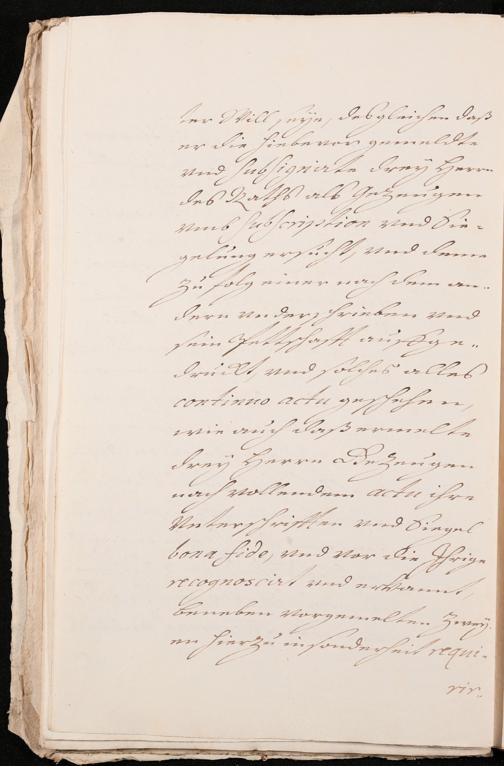 ter Will seye, desgleichen daß
er die hiebevor gemeldte
und subsignirte drey Herrn
des Raths als Gezeugen
umb subscription und Sie-
gelung ersucht, und deme
zu folg einer nach dem an-
dern underschrieben und
sein Pettschafft auffge-
druckt, und solches alles
continuo actu geschehen,
wie auch daß ermelte
drey Herrn Gezeugen
nach vollendem actu ihre
Unterschrifften und Siegel
bona fide, und vor die Ihrige
recognoscirt und erkannt,
beneben vorgemelten zwey-
en hierzu insonderheit requi-
rir-